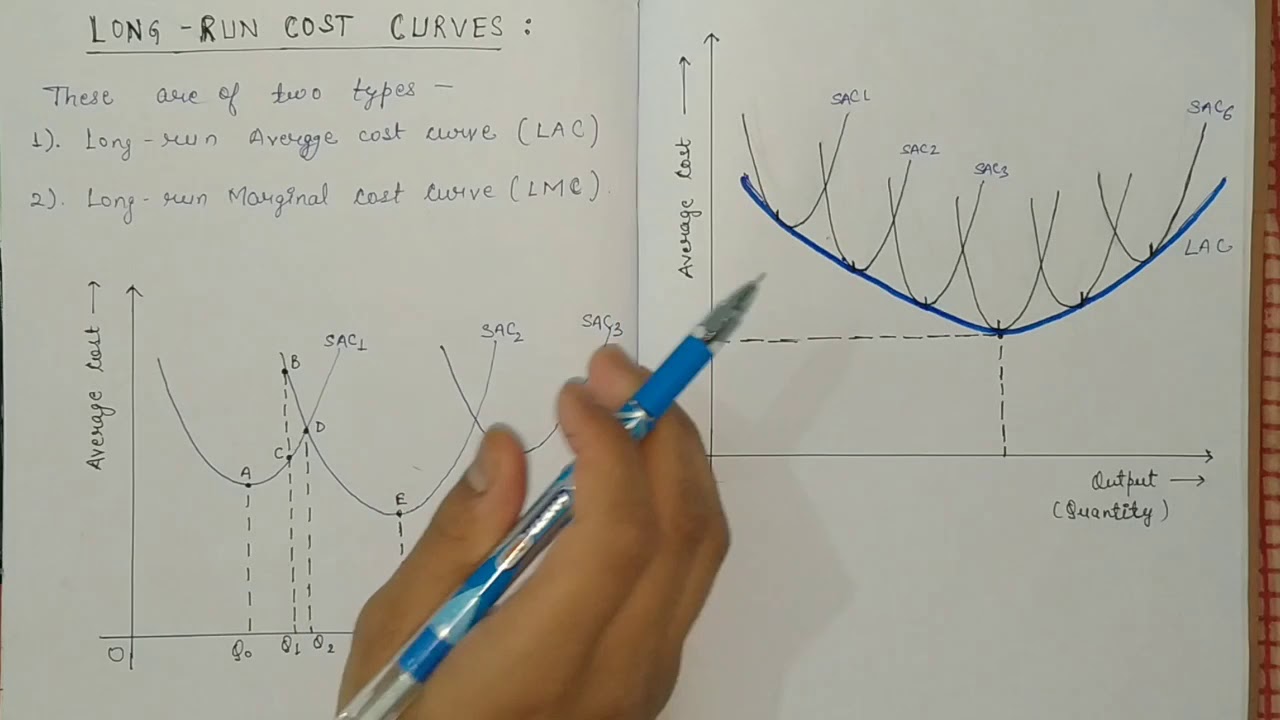 LONG-RUN COST CURVES:
These are of two types —
1). Long-run Average cost curve (LAC)
2). Long-run Marginal cost curve (LMC).
Average cost →
SAC1
SAC2
SAC3
B
D
C
A
E
O
Q0
Q1
Q2
Average cost →
SAC1
SAC2
SAC3
SAC6
LAC
Output →
(Quantity)